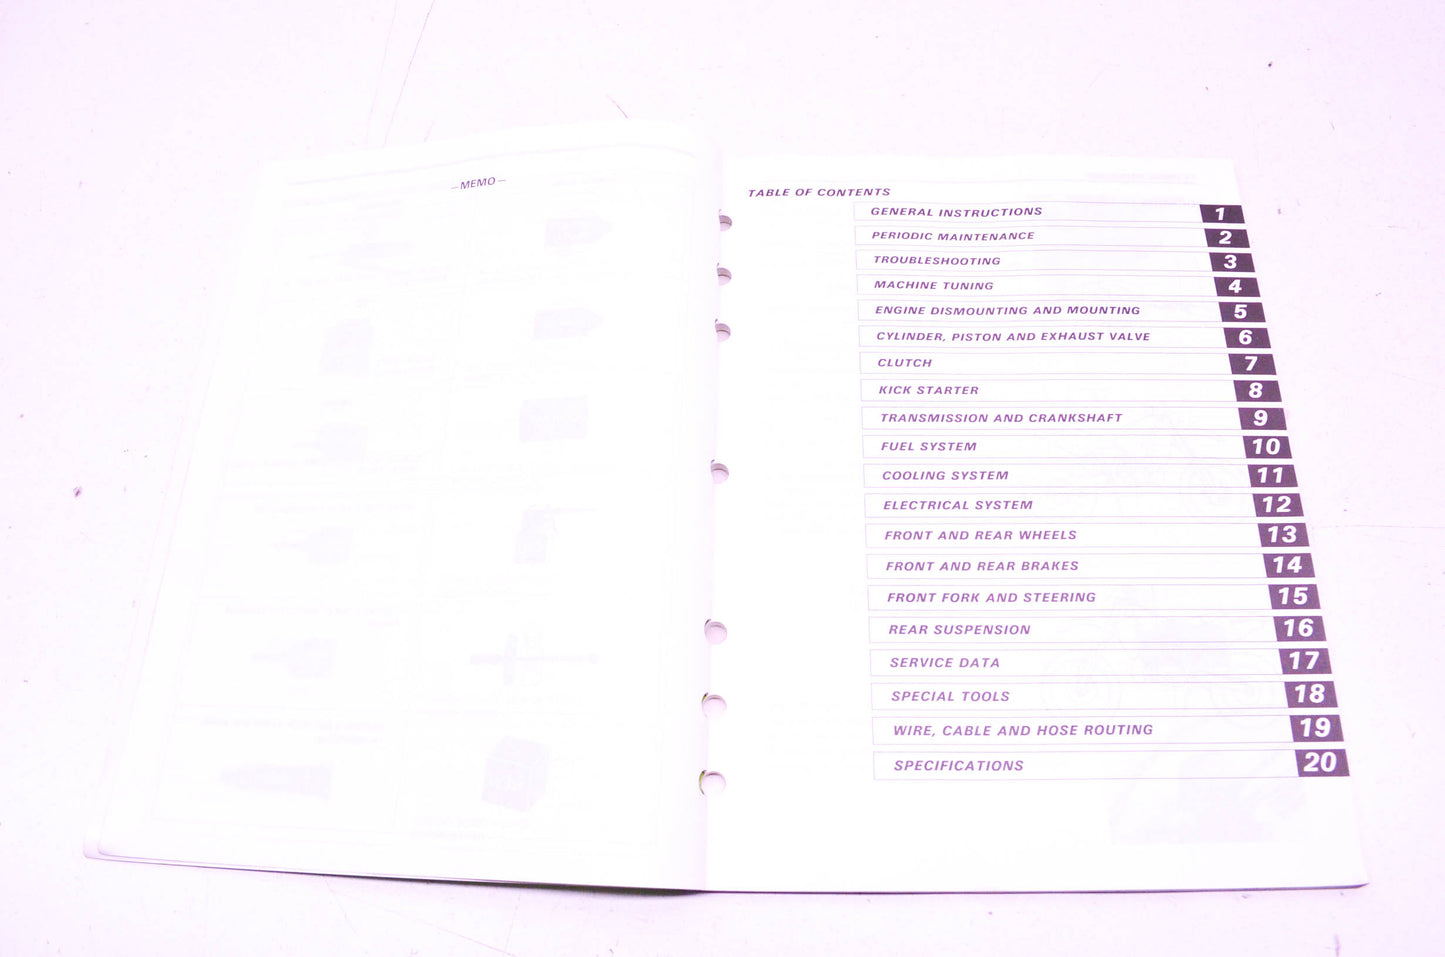 —MEMO—
TABLE OF CONTENTS
GENERAL INSTRUCTIONS 1
PERIODIC MAINTENANCE 2
TROUBLESHOOTING 3
MACHINE TUNING 4
ENGINE DISMOUNTING AND MOUNTING 5
CYLINDER, PISTON AND EXHAUST VALVE 6
CLUTCH 7
KICK STARTER 8
TRANSMISSION AND CRANKSHAFT 9
FUEL SYSTEM 10
COOLING SYSTEM 11
ELECTRICAL SYSTEM 12
FRONT AND REAR WHEELS 13
FRONT AND REAR BRAKES 14
FRONT FORK AND STEERING 15
REAR SUSPENSION 16
SERVICE DATA 17
SPECIAL TOOLS 18
WIRE, CABLE AND HOSE ROUTING 19
SPECIFICATIONS 20